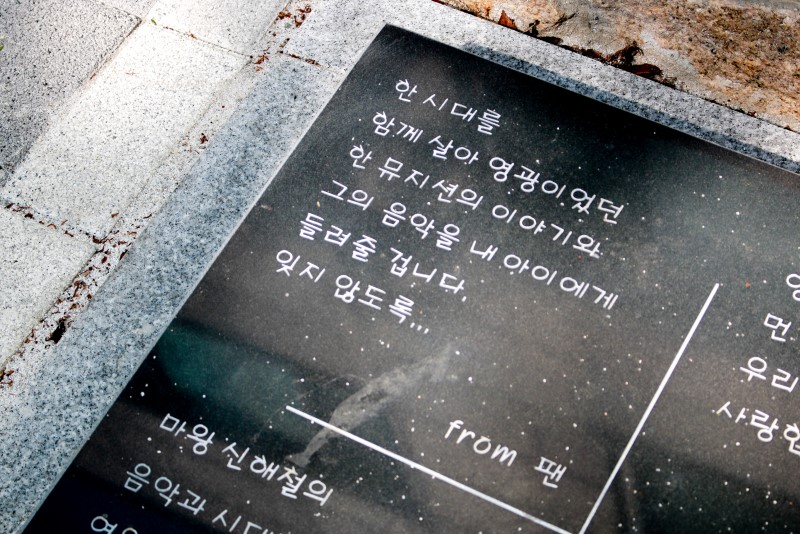 한 시대를
함께 살아 영광이었던
한 뮤지션의 이야기와
그의 음악을 내 아이에게
들려줄 겁니다.
잊지 않도록...
from 팬
마왕 신해철의
음악과 시대
먼
우리
사랑한